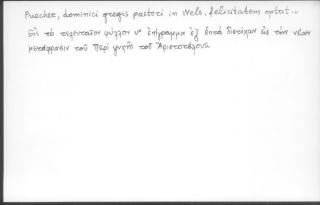 Puecher, dominici gregis pastori in Wels, felicitatem optat...
Εἰς τὸ τελευταῖον φύλλον υʳ ἐπίγραμμα ἐξ ἑπτὰ διστίχων εἰς τὴν νέαν
μετάφρασιν τοῦ Περὶ ψυχῆς τοῦ Ἀριστοτέλους.